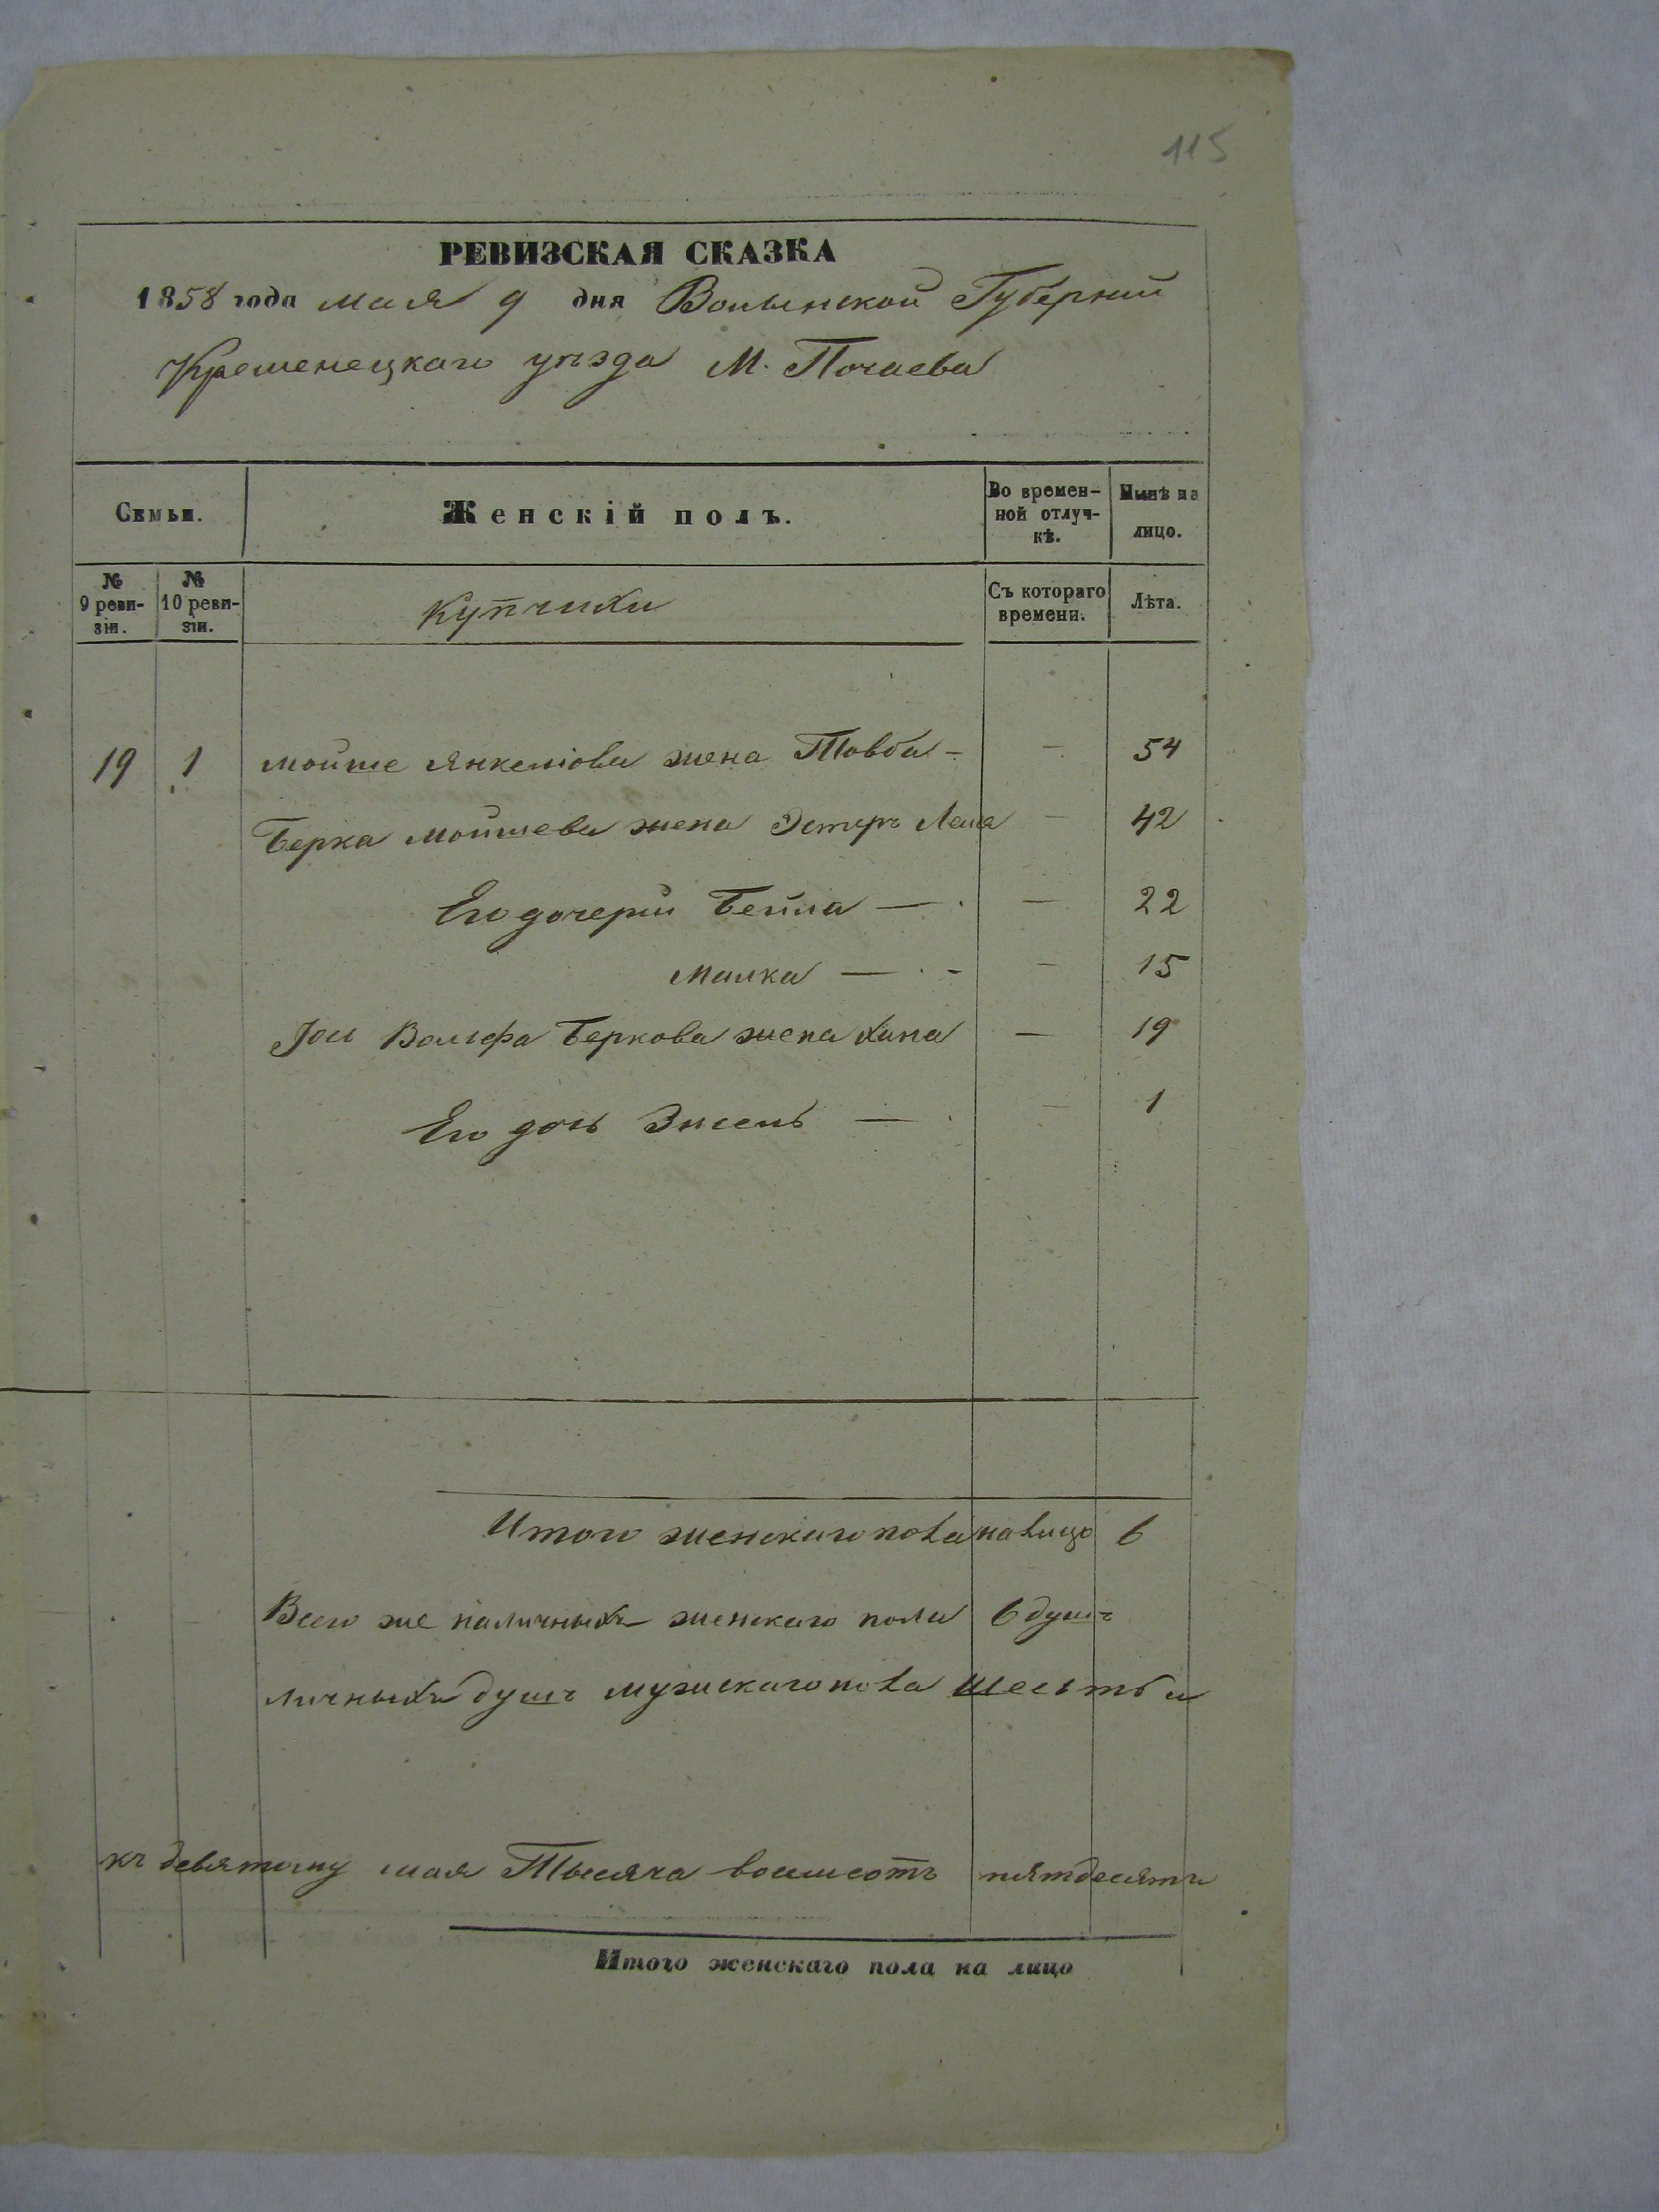 115
РЕВИЗСКАЯ СКАЗКА
1858 года мая 9 дня Волынской Губерніи
Кременецкаго уезда М. Почаева
Семьи.
Женскій полъ.
Во времен-
ной отлуч-
кѣ.
Нынѣ на
лицо.
№
9 реви-
зіи.
№
10 реви-
зіи.
Купчихи
Съ котораго
времени.
Лѣта.
19 1 Мойше Янкеліова жена Товба - — 54
Берка Мойшева жена Эстеръ Лея — 42
Его дочери Бейла — — 22
Малка — - — 15
Вольфа Беркова жена Хина — 19
Его дочь — — 1
Итого женскаго пола на лицо 6
Всего же наличныхъ женскаго пола 6 душъ
личныхъ душъ мужскаго пола шесть и
къ девятому мая Тысяча восемсотъ пятдесятъ
Итого женскаго пола на лицо